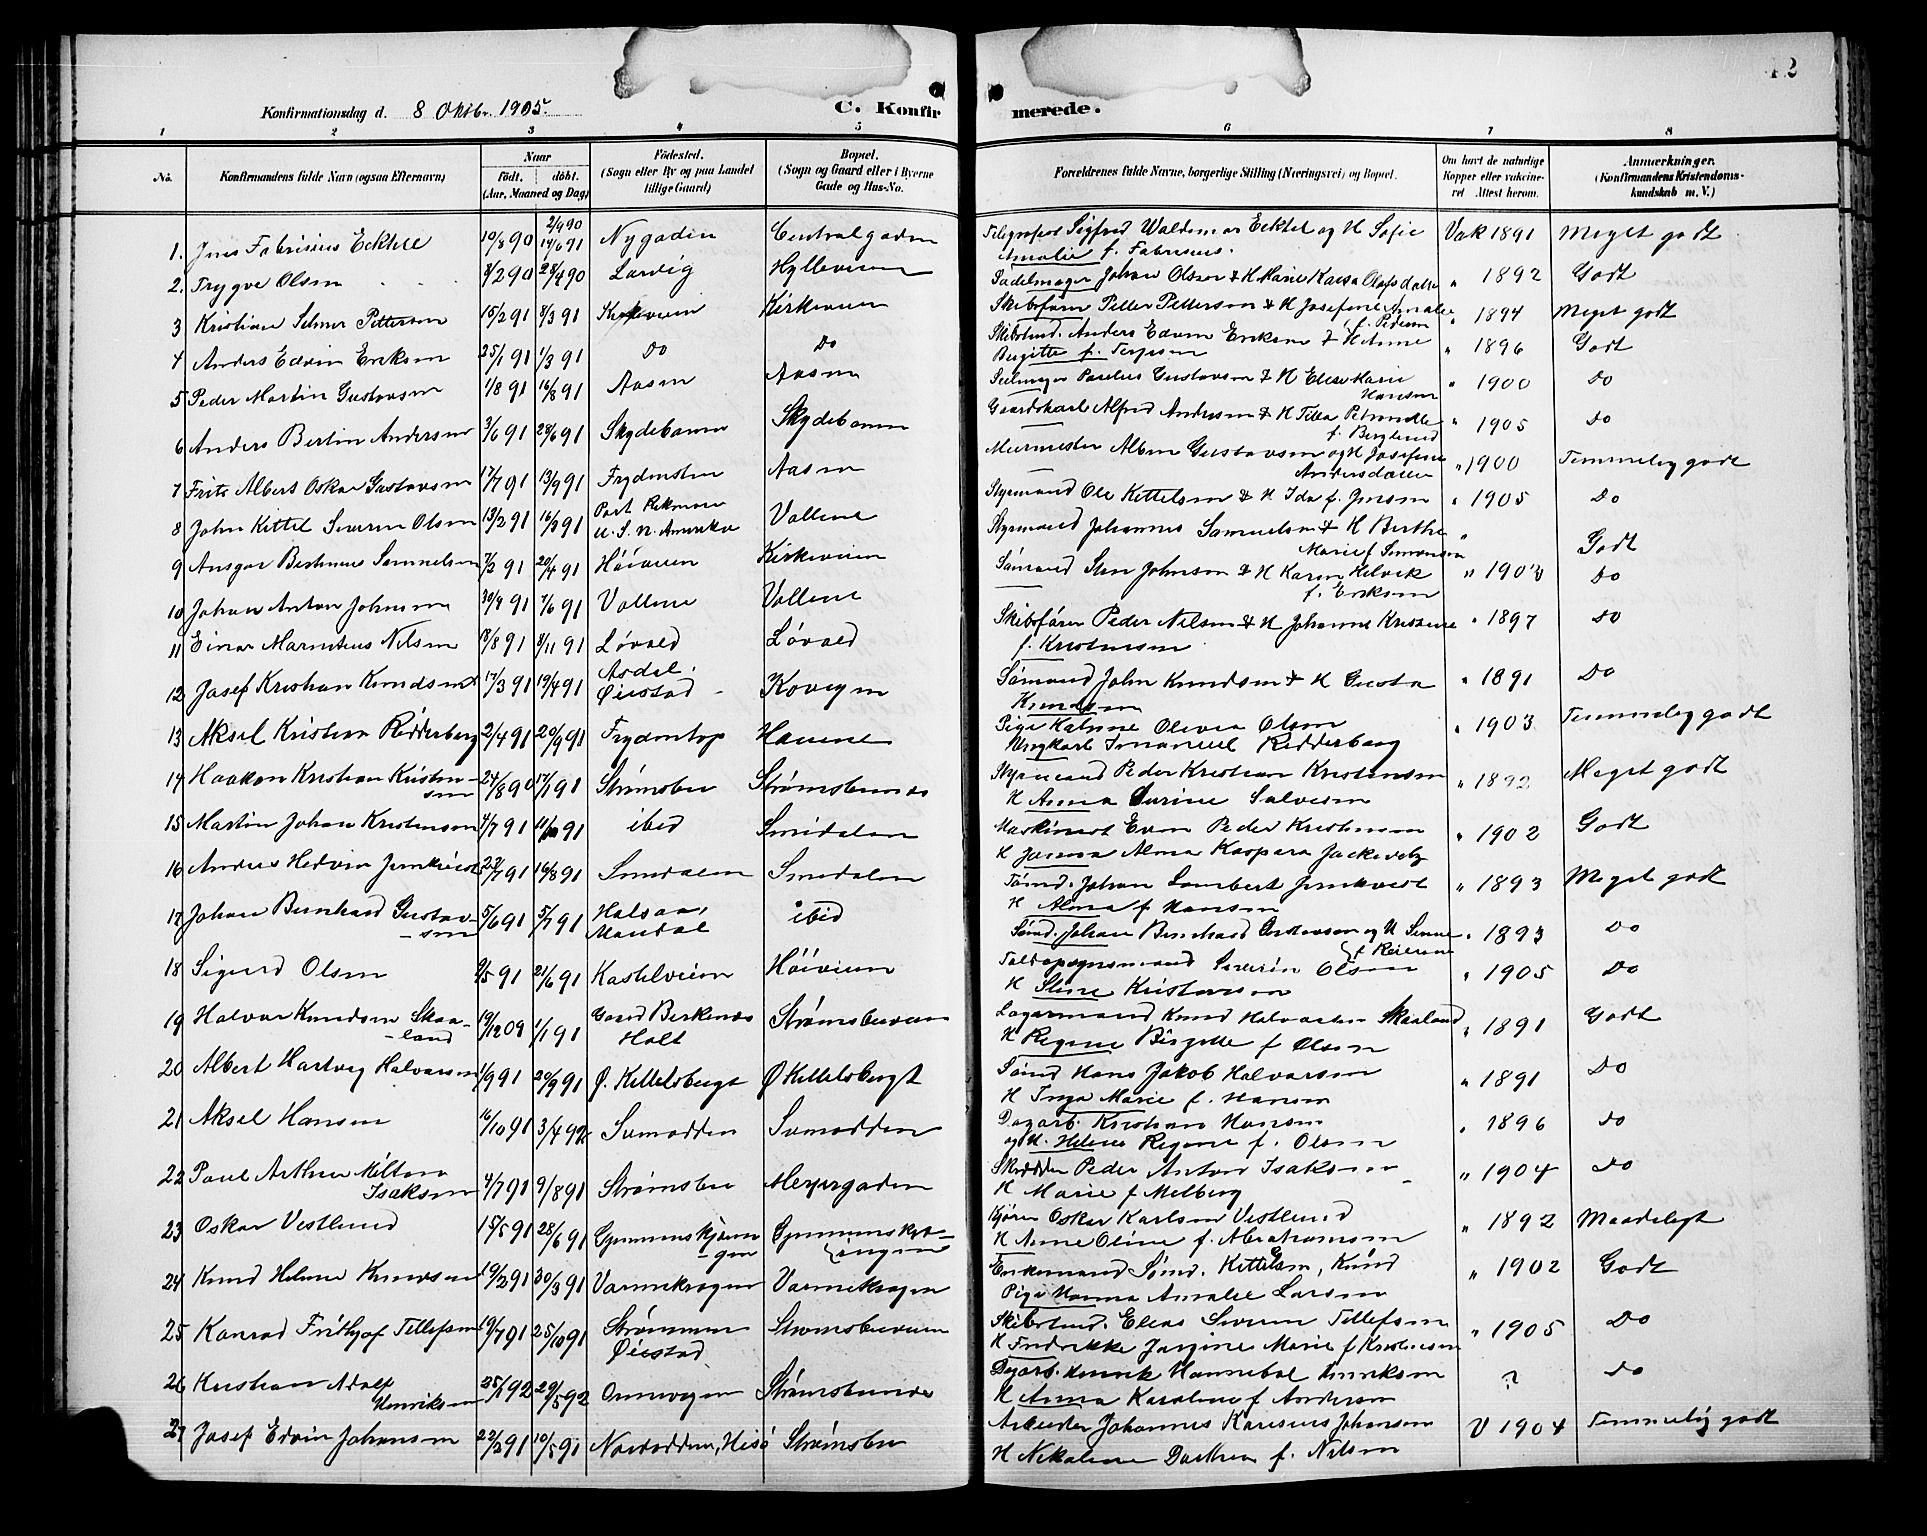 12
Konfirmationsdag d. 8 Oktbr. 1905.
C. Konfirmerede.
1 2 3 4 5 6 7 8
No. Konfirmandens fulde Navn (ogsaa Efternavn)
Naar
født. døbt.
(Aar, Maaned og Dag)
Fødested.
(Sogn eller By og paa Landet
tillige Gaard)
Bopæl.
(Sogn og Gaard eller i Byerne
Gade og Hus-No.
Forældrenes fulde Navne, borgerlige Stilling (Næringsvei) og Bopæl.
Om havt de naturlige
Kopper eller vakcine-
ret Attest herom.
Anmærkninger.
(Konfirmandens Kristendoms-
kundskab m. V.)
1. Jens Fabrisius Ecktel 10/8 90 Nygaden Centralgaden Telegrafist Sigfred Waldemar Ecktel og H Sofie Vak 1891 Meget godt
2/9 90
14/6 91
Amalie f. Fabrisius.
2. Trygve Olsen 8/2 90 28/4 90 Larvig Hylleveien Sadelmager Johan Olsen & H Marie Olafsdatter " 1892 Godt
3 Kristian Selmer Pettersen 15/2 91 8/3 91 Kirkeveien Kirkeveien Skibsfører Petter Pettersen & H Josefine Amalie " 1894 Meget godt
f. Pedersen
4 Anders Edvin Eriksen 25/1 91 1/3 91 Do Do Skibstmd. Anders Edvin Eriksen & H Anne " 1896 Godt
Birgitte f. Terjesen
5 Peder Martin Gustavsen 1/8 91 16/8 91 Aasen Aasen Seilmager Gustavsen & H Elise Marie " 1900 Do
Hansen
6 Anders Bertin Andersen 3/6 91 28/6 91 Skydebanen Skydebanen Gaardskarl Alfred Andersen & H Petronelle " 1905 Do
f. Berglund
7 Frits Albert Oskar Gustavsen 17/7 91 13/9 91 Frydensten Aasen Murmester Gustavsen og H Josefine " 1900 Temmelig godt
Andersdatter
8 John Kittel Severin Olsen 13/2 91 Port U. S. N. Amerika Vollene Styrmand Ole Kittelsen & H Ida f. Jensen " 1905 Do
9 Ansgar Samuelsen 7/2 91 20/4 91 Høiveien Kirkeveien Styrmand Johannes Samuelsen & H Berthe " Godt
Marie f Simonsen
10 Johan Anton Johnsen 30/4 91 7/6 91 Vollene Vollene Sømand Johnsen & H Karen " Do
f. Eriksen
11 Einar Nilsen 18/8 91 8/11 91 Løvold Løvold Skibsfører Peder Nilsen & H Johanne Kristine " 1897 Do
f. Kristensen
12 Josef Kristian Knudsen 17/3 91 19/4 91 Asdal, Øiestad Kovegen Sømand John Knudsen & H Gusta " 1891 Do
Knudsen
13 Aksel Kristian Ridderberg 2/4 91 20/9 91 Frydentop Havene Pige Olivia Olsen " 1903 Temmelig godt
Ungkarl Imanuel Ridderberg
14 Haakon Kristian Kristen- 24/8 90 17/1 91 Strømsbu Strømsbunes Styrmand Peder Kristian Kristensen " 1892 Meget godt
sen H Anna Severine Salvesen
15 Martin Johan Kristensen 4/7 91 11/10 91 ibid Smedalen Maskinist Even Peder Kristensen " 1902 Godt
H Alma Kaspara
16 Anders Hedvin 22/7 91 16/8 91 Smedalen Smedalen Sømd. Johan Lambert " 1893 Meget godt
H Alma f Hansen
17 Johan Bernhard Gustav- 5/6 91 5/7 91 Halsaa, ibid Sømd. Johan Bernhard Gustavsen og H " 1893 Do
-sen Mandal
18 Sigurd Olsen 21/6 91 Kastelveien Høiveien Toldopsynsmand Severin Olsen " 1905 Do
H Stine Kristensen
19 Halvor Knudsen Skaa- 19/12 09 1/1 91 Gaard Birkenes Strømsbuveien Lagermand Knud Halvorsen Skaaland " 1891 Godt
-land Holt H Regine Birgitte f Olsen
20 Albert Hartvig Halvorsen 1/9 91 20/9 91 Ø. Kittelsbugt Ø Kittelsbugt Sømd Hans Jakob Halvorsen " 1891 Do
H Inga Marie f. Hansen
21 Aksel Hansen 16/10 91 3/4 92 Svinodden Svinodden Dagarb. Kristian Hansen " 1896 Do
og H. Helene Regine f. Olsen
22 Paul Arthur Milton 4/7 91 9/8 91 Strømsbu Meyergaden Skrædder Peder Anton Isaksen " 1904 Do
Isaksen H Marie f Melberg
23 Oskar Vestlund 15/5 91 28/6 91 Kjører Oskar Karlsen Vestlund " 1892 Maadeligt
H Anne Oline f. Abrahamsen
24 Knud Helmer Knudsen 19/2 91 30/3 91 Varmekrogen Varmekrogen Enkemand Sømd. Kittelsen, Knud " 1902 Godt
Pige Hanna Amalie Larsen
25 Konrad Frithjof Tellefsen 19/7 91 25/10 91 Strømmen Strømsbuveien Skibstmd. Elias Severin Tellefsen " 1905 Do
Øiestad H Fredrikke Jørgine Marie f Kristensen
26 Kristian Adolf 25/1 92 29/5 92 Strømsbunes Dagarb. Henrik Hannibal Henriksen ? Do
Henriksen H Anna Karoline f Andersen
27 Josef Edvin Johansen 22/2 91 10/5 91 Nordodden, Hisø Strømsbu Arbeider Johannes Johansen V 1904 Temmelig godt
H Nikoline Dorthea f. Nilsen